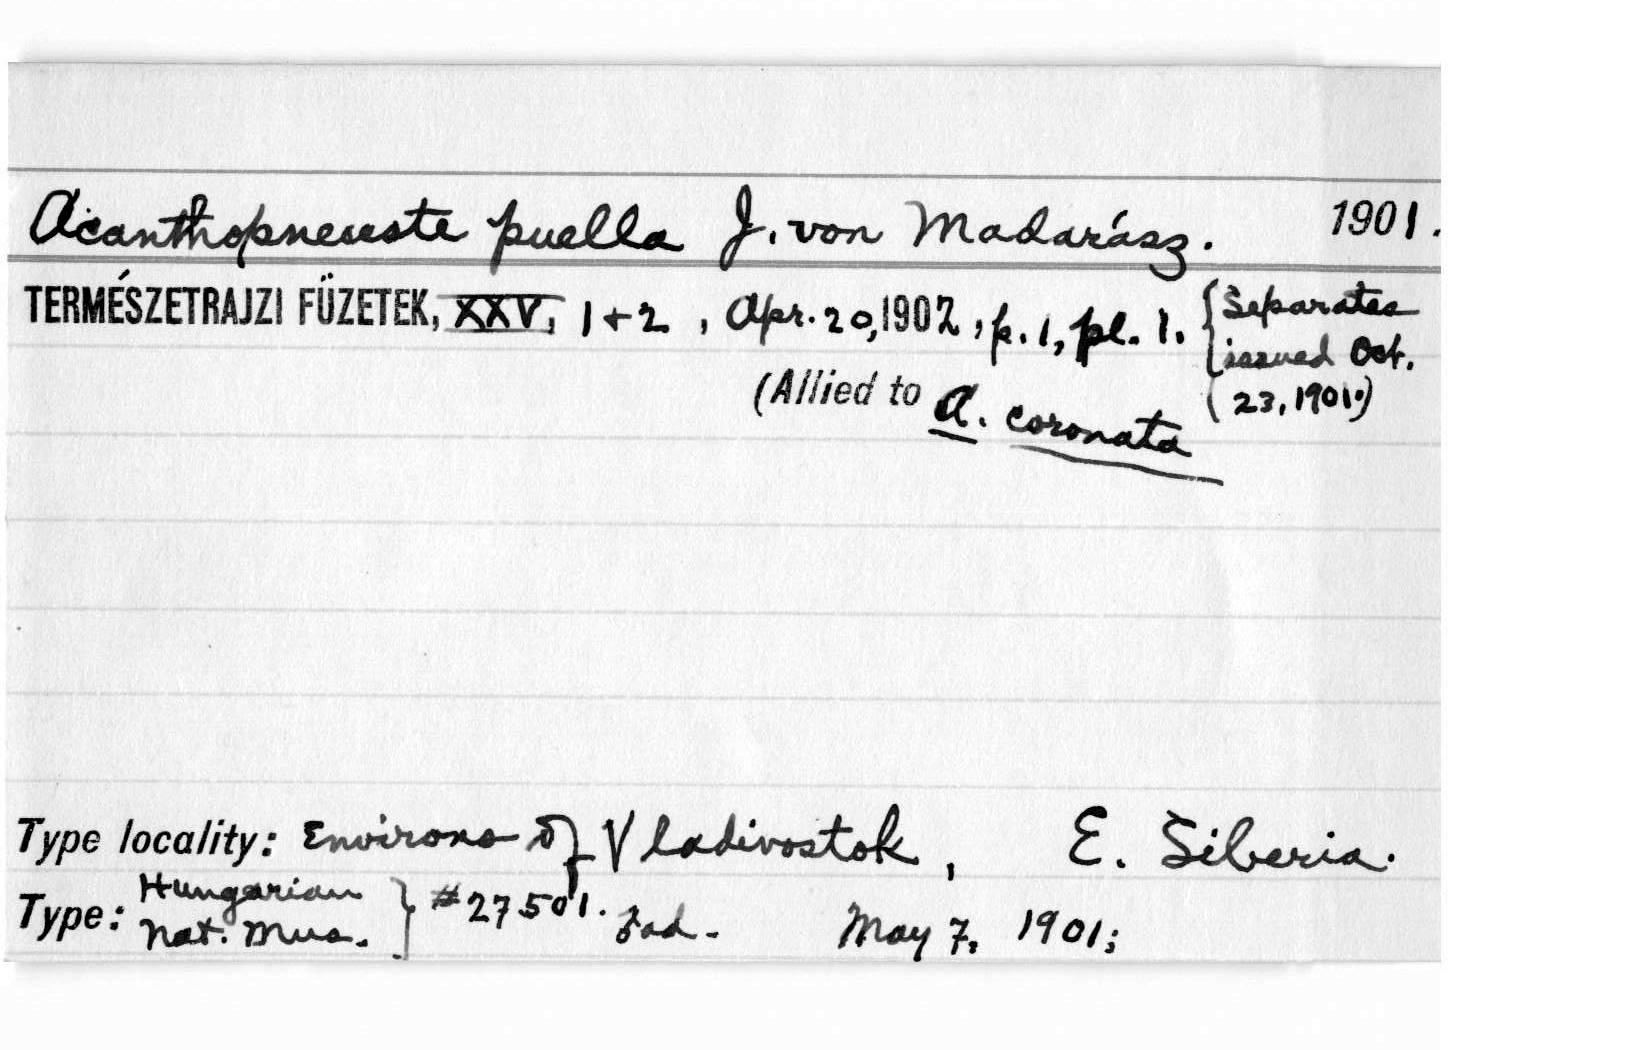 Acanthopneuste puella J. von Madarász. 1901.
TERMÉSZETRAJZI FÜZETEK, XXV, 1+2, Apr. 20, 1902, p. 1, pl. 1. {Separates
issued Oct.
23, 1901.)
(Allied to A. coronata
Type locality: Environs of Vladivostok, E. Siberia.
Type: Hungarian
Nat. Mus. } #27501. ad. May 7, 1901;